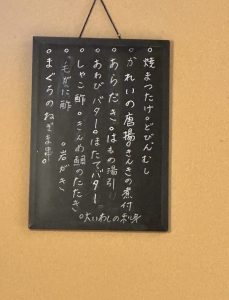 ○焼まつたけ○どびんむし
○かれいの唐揚○きんきの煮付
○あらだき○はもの湯引
○あわびバター○ほたてバター
○しゃこ酢○きんめ鯛のたたき
○毛がに酢 ○岩がき
○まぐろのねぎま串
○大いわしの刺身